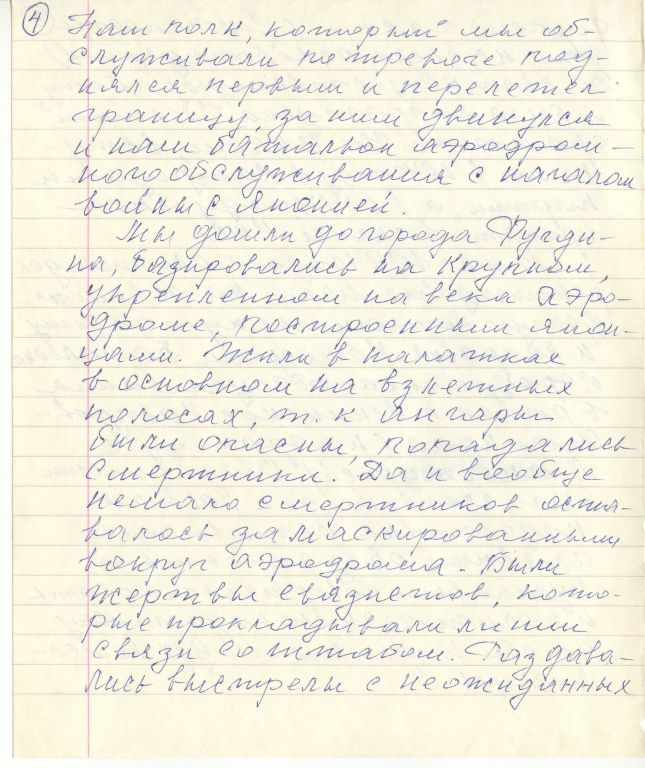 4
Наш полк, который мы об-
служивали по тревоге под-
нялся первым и перелетел
границу, за ним двинулся
и наш батальон аэродром-
ного обслуживания с началом
войны с Японией.
Мы дошли до города Фугди-
на, базировались на крупном,
укрепленном на века аэро-
дроме, построенным япон-
цами. Жили в палатках
в основном на взлетных
полосах, т. к ангары
были опасны, попадались
смертники. Да и вообще
немало смертников оста-
валось замаскированными
вокруг аэродрома. Были
жертвы связистов, кото-
рые прокладывали линии
связи со штабом. Раздава-
лись выстрелы с неожиданных